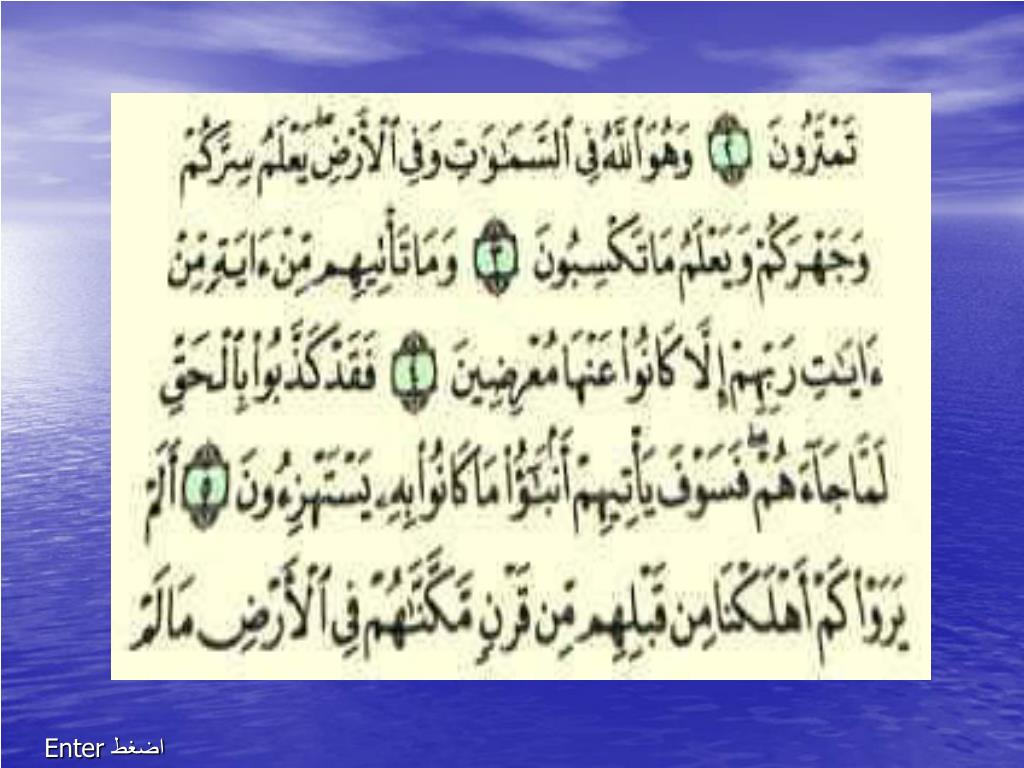 تَمْتَرُونَ ٢ وَهُوَ ٱللَّهُ فِى ٱلسَّمَٰوَٰتِ وَفِى ٱلْأَرْضِ ۖ يَعْلَمُ سِرَّكُمْ
وَجَهْرَكُمْ وَيَعْلَمُ مَا تَكْسِبُونَ ٣ وَمَا تَأْتِيهِم مِّنْ ءَايَةٍ مِّنْ
ءَايَٰتِ رَبِّهِمْ إِلَّا كَانُوا۟ عَنْهَا مُعْرِضِينَ ٤ فَقَدْ كَذَّبُوا۟ بِٱلْحَقِّ
لَمَّا جَآءَهُمْ ۖ فَسَوْفَ يَأْتِيهِمْ أَنۢبَٰٓؤُا۟ مَا كَانُوا۟ بِهِۦ يَسْتَهْزِءُونَ ٥ أَلَمْ
يَرَوْا۟ كَمْ أَهْلَكْنَا مِن قَبْلِهِم مِّن قَرْنٍ مَّكَّنَّٰهُمْ فِى ٱلْأَرْضِ مَا لَمْ
اضغط Enter